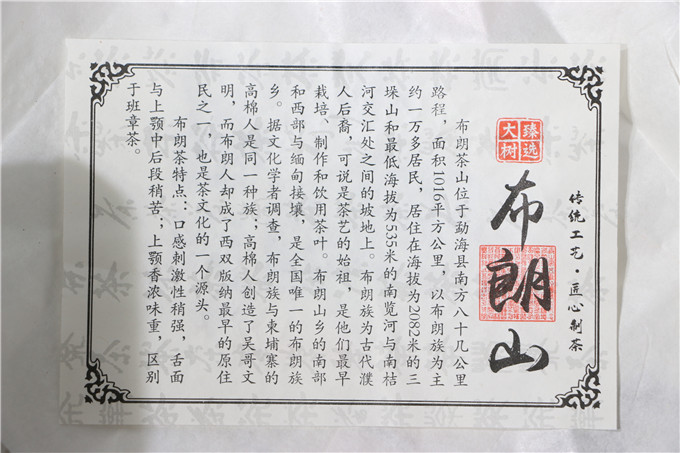 传统工艺·匠心制茶
臻选
大树
布朗山
布朗茶山位于勐海县南方八十几公里
路程，面积1016平方公里，以布朗族为主
约一万多居民，居住在海拔为2082米的三
垛山和最低海拔为535米的南览河与南桔
河交汇处之间的坡地上。布朗族为古代濮
人后裔，可说是茶艺的始祖，是他们最早
栽培、制作和饮用茶叶。布朗山乡的南部
和西部与缅甸接壤，是全国唯一的布朗族
乡。据文化学者调查，布朗族与柬埔寨的
高棉人是同一种族；高棉人创造了吴哥文
明，而布朗人却成了西双版纳最早的原住
民之一，也是茶文化的一个源头。
布朗茶特点：口感刺激性稍强，舌面
与上颚中后段稍苦；上颚香浓味重，区别
于班章茶。